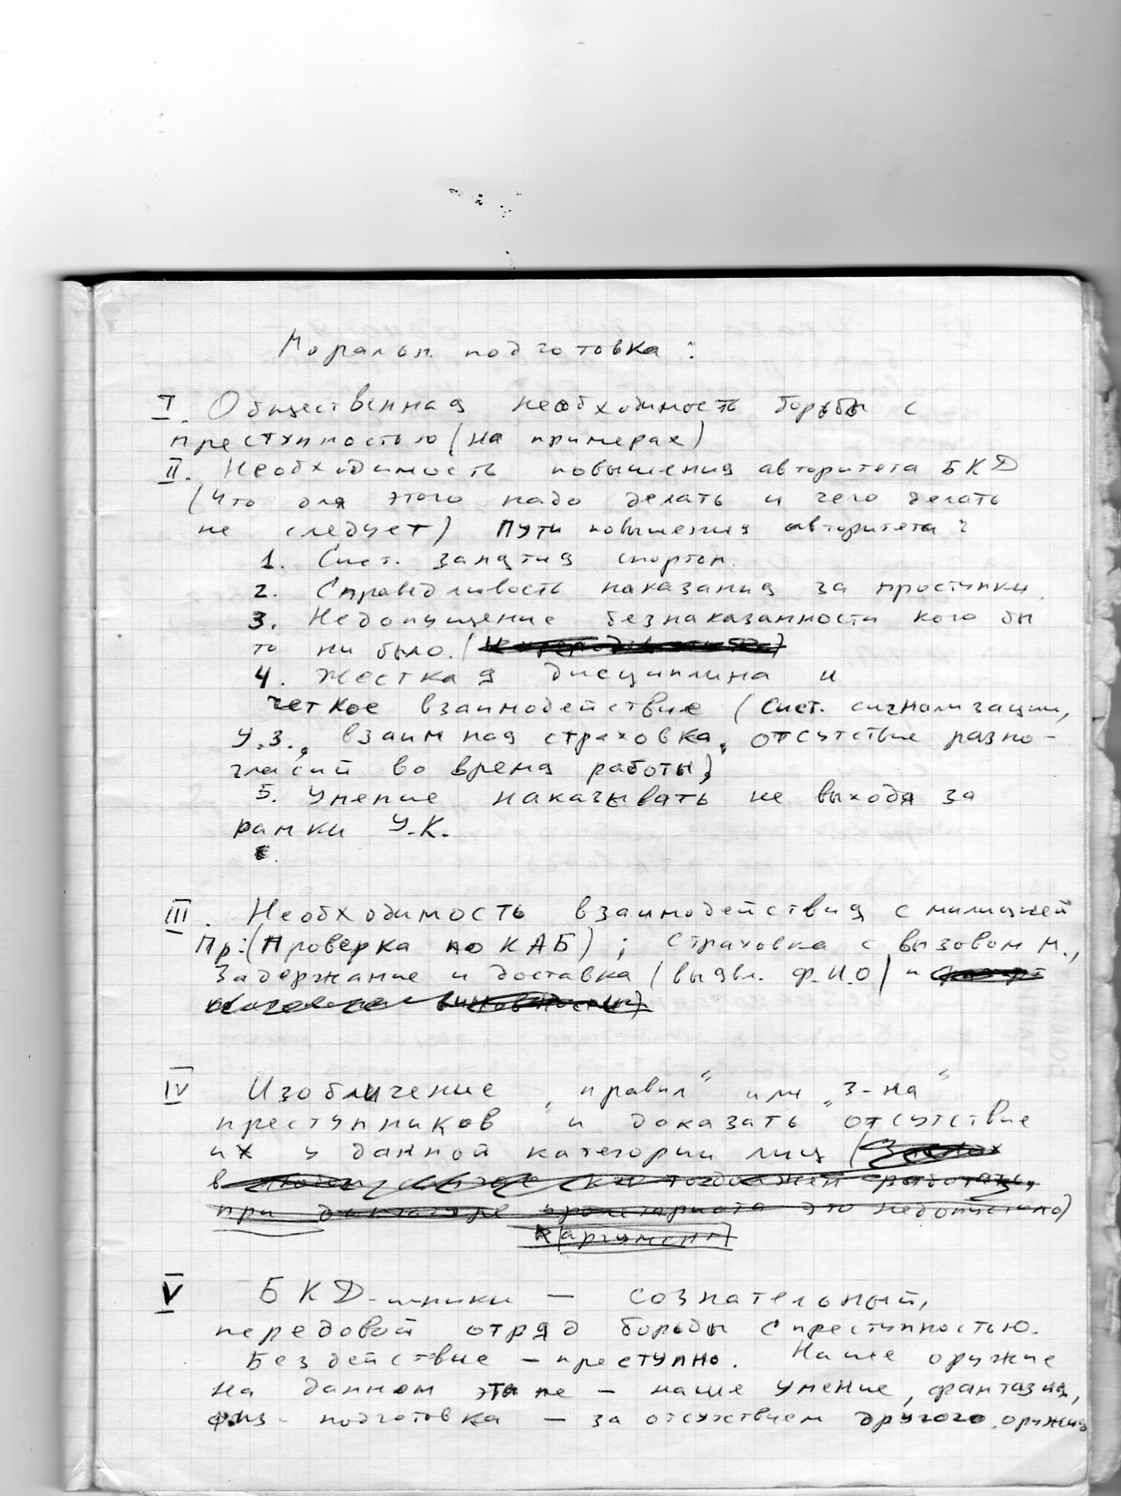 Моральн. подготовка:
I. Общественная необходимость борьбы с
преступностью (на примерах)
II. Необходимость повышения авторитета БКД
(Что для этого надо делать и чего делать
не следует) Пути повышения авторитета:
1. Сист. занятия спортом.
2. Справедливость наказания за проступки.
3. Недопущение безнаказанности кого бы
то ни было. (
4. Жесткая дисциплина и
четкое взаимодействие (сист. сигнализации,
У.З., взаимная страховка, отсутствие разно-
гласий во время работы)
5. Умение наказывать не выходя за
рамки У.К.
III. Необходимость взаимодействия с милицией
Пр:(Проверка по КАБ); страховка с вызовом м.,
Задержание и доставка (выявл. Ф.И.О) и
IV Изобличение „правил“ или „з-на“
преступников и доказать отсутствие
их у данной категории лиц (
в должен работать,
при диктатуре пролетариата это недопустимо)
(аргумент)
V БКД-шники — сознательный,
передовой отряд борьбы с преступностью.
Бездействие — преступно. Наше оружие
на данном этапе — наше умение, фантазия,
физ-подготовка — за отсутствием другого оружия